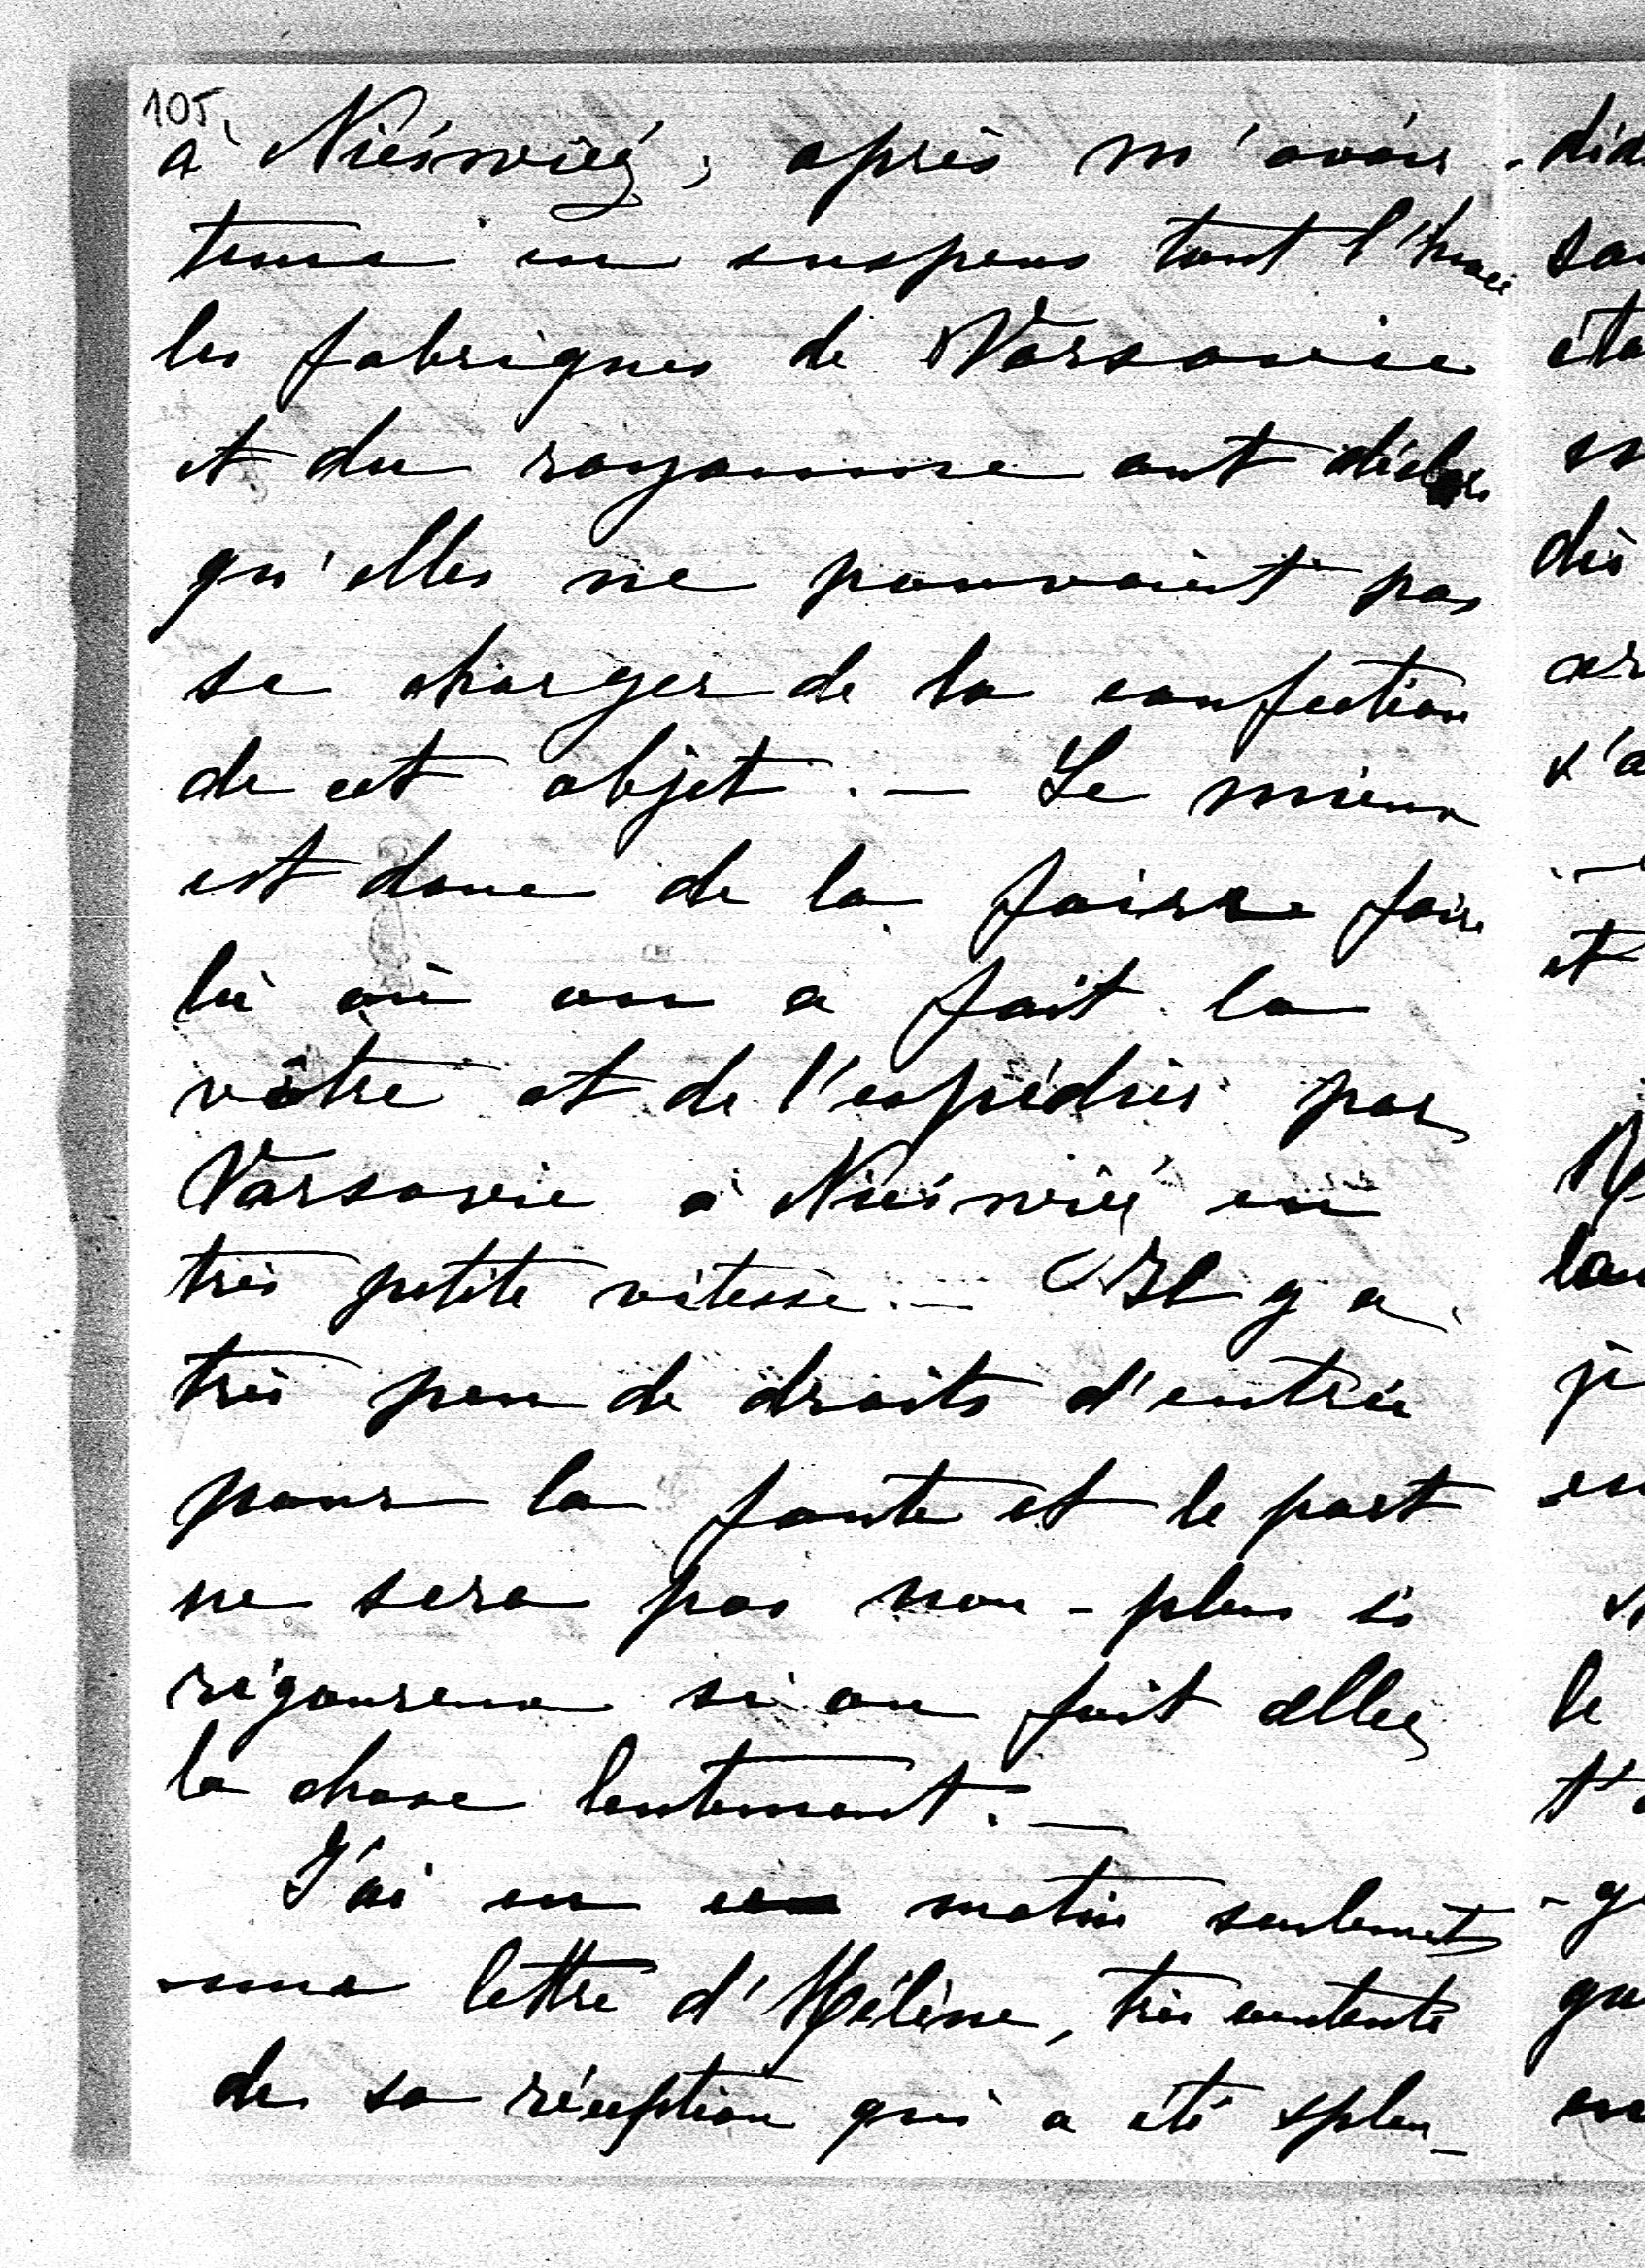 105.
à Nieśwież; après m'avoir
tenue en suspens tout l'hiver
les fabriques de Varsovie
et du royaume ont déclaré
qu'elles ne pouvaient pas
se charger de la confection
de cet objet. — Le mieux
est donc de la faire faire
là où on a fait la
vôtre et de l'expédier par
Varsovie à Nieśwież en
très petite vitesse. — Il y a
très peu de droits d'entrée
pour la fonte et le port
ne sera pas non-plus si
rigoureux si on fait aller
la chose lentement. —
J'ai eu ce matin seulement
une lettre d'Hélène, très contente
de sa réception qui a été splen-